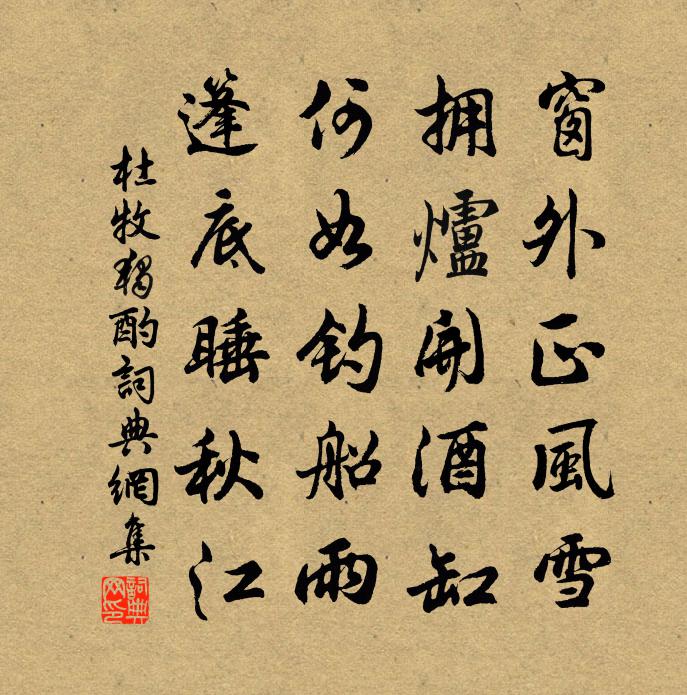 窗外正風雪
拥爐開酒缸
何如釣船雨
蓬底睡秋江
杜牧獨酌詞典網集
詞典網印